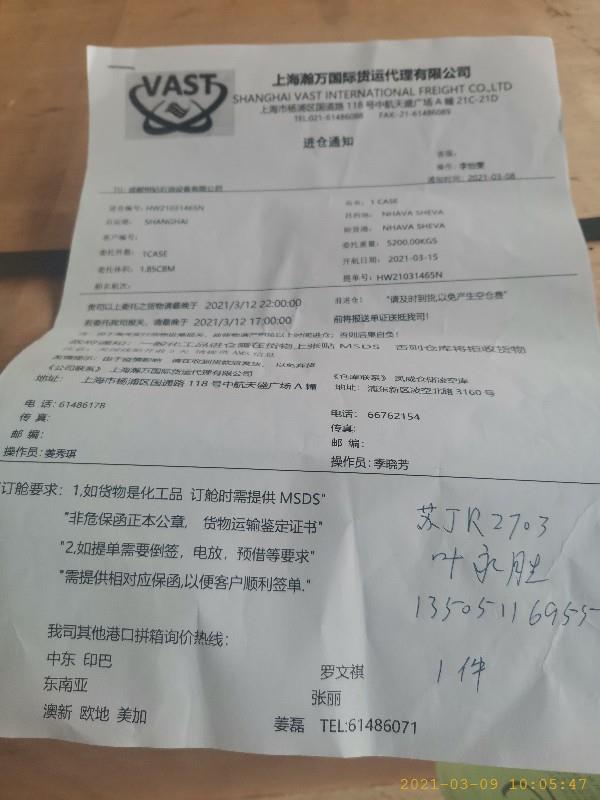 VAST
上海瀚万国际货运代理有限公司
SHANGHAI VAST INTERNATIONAL FREIGHT CO.,LTD
上海市杨浦区国道路 118 号中航天盛广场 A 幢 21C-21D
TEL:021-61486088 FAX:21-61486089
进仓通知
客服:
操作: 李怡雯
通知时间: 2021-03-08
进仓编号: HW21031465N
品名: 1 CASE
启运港: SHANGHAI
目的地: NHAVA SHEVA
客户编号:
卸货港: NHAVA SHEVA
委托件数: 1CASE
委托重量: 5200.00KGS
委托体积: 1.85CBM
开航日期: 2021-03-15
船名航次:
提单号: HW21031465N
贵司以上委托之货物请最晚于 2021/3/12 22:00:00
前进仓: "请及时到货,以免产生空仓费"
若委托我司报关、请最晚于 2021/3/12 17:00:00
前将报送单证送抵我司!
《公司联系》上海瀚万国际货运代理有限公司
《仓库联系》凤威仓储凌空库
地址: 上海市杨浦区国道路 118 号中航天盛广场 A 幢
地址: 浦东新区凌空北路 3160 号
电 话: 61486178
电话: 66762154
传 真:
传真:
邮 编:
邮 编:
操作员: 姜秀琪
操作员: 李晓芳
订舱要求: 1,如货物是化工品 订舱时需提供 MSDS"
"非危保函正本公章, 货物运输鉴定证书"
"2,如提单需要倒签，电放，预借等要求"
"需提供相对应保函,以便客户顺利签单."
苏JR2703
叶永胜
13505116955
1件
我司其他港口拼箱询价热线:
中东 印巴 罗文祺
东南亚 张丽
澳新 欧地 美加 姜磊 TEL:61486071
2021-03-09 10:05:47